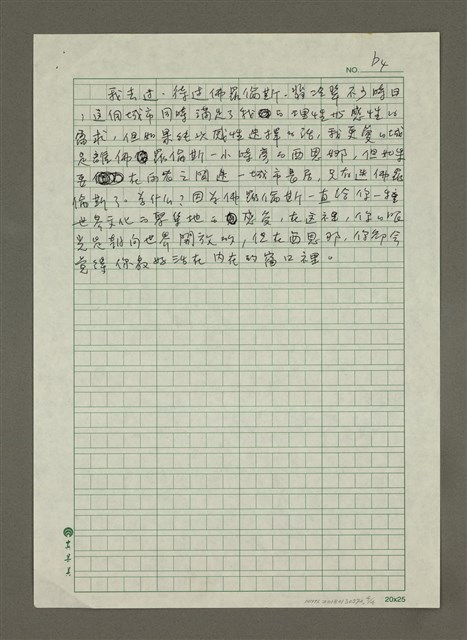 NO b4
我去过、待过佛羅倫斯、翡冷翠不少時日
，這個城市同時滿足了我的理性也感性的
需求，但如果純以感性选擇的话，我更愛的城
是離佛羅倫斯一小時車的西恩娜，但如果
要在两者之間选一城市長居，只有选佛羅
倫斯了。為什么？因為佛羅倫斯一直给你一種
世界文化的聚集地的感受，在这裡，你的眼
光是朝向世界開放的，但在西恩那，你卻会
覺得你教好活在内在的窗口裡。
20x25